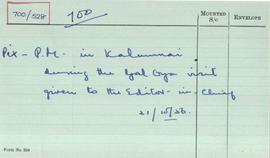 700/528
150
MOUNTED S/C
ENVELOPE
Pix - P.M. in Kalmunai
during the Gal Oya visit
given to the Editor-in-Chief
21/10/56.
Form No. 359